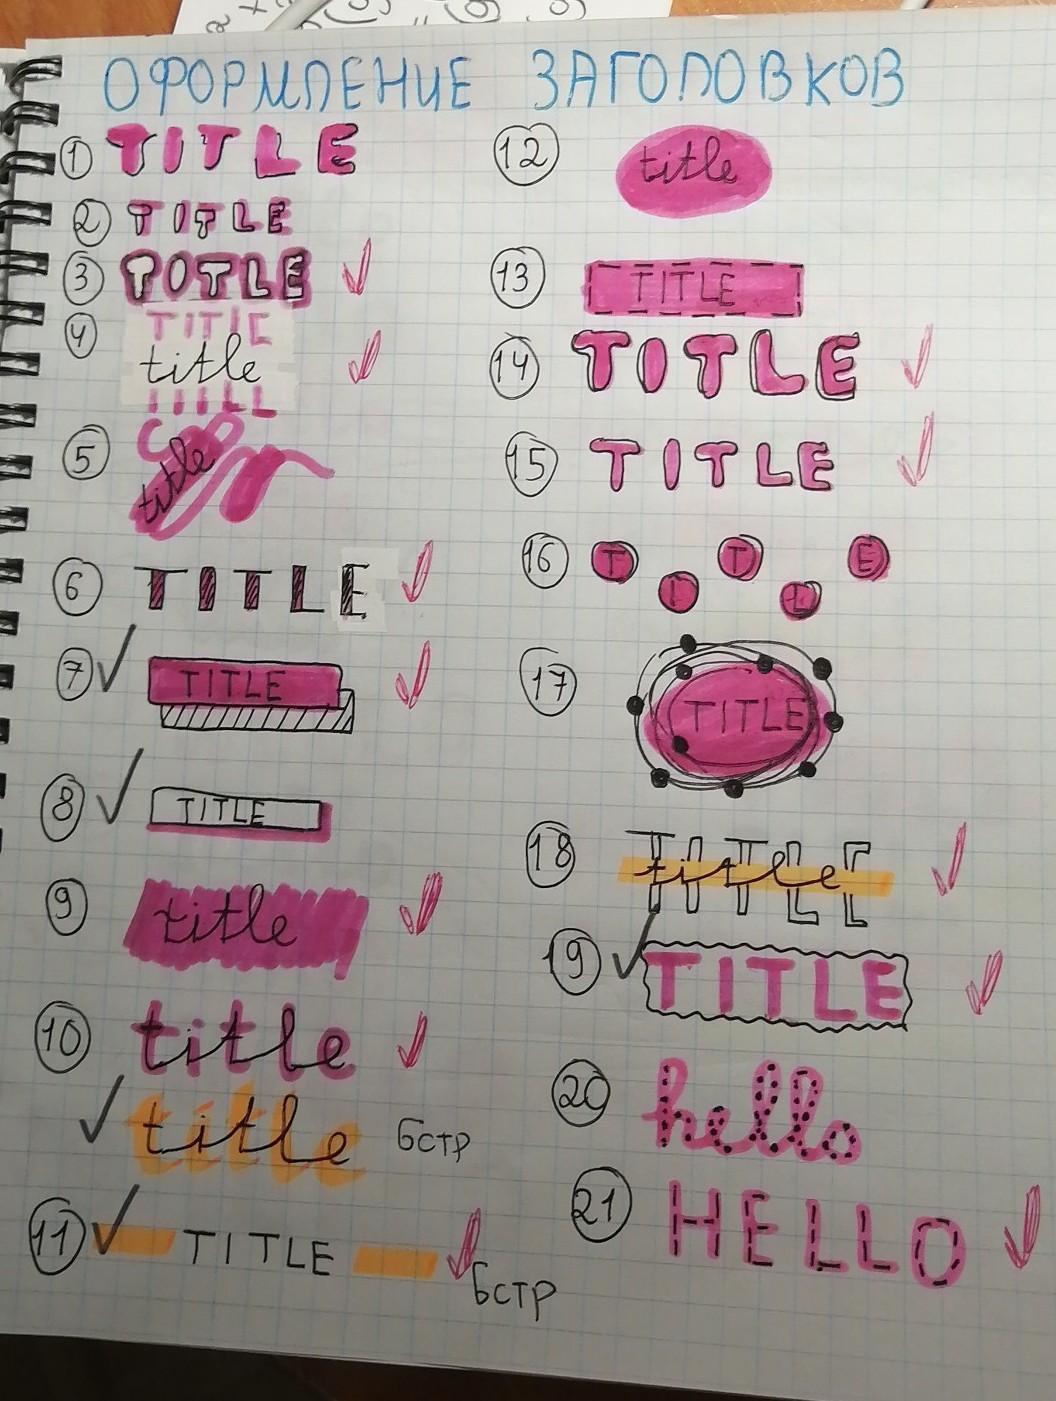 ОФОРМЛЕНИЕ ЗАГОЛОВКОВ
1 TITLE
2 TITLE
3 TOTLE
4 TITLE
title
5 title
6 TITLE
7 TITLE
8 TITLE
9 title
10 title
title бстр
11 TITLE бстр
12 title
13 TITLE
14 TITLE
15 TITLE
16 TITLE
17 TITLE
18 TITLE
title
19 TITLE
20 hello
21 HELLO